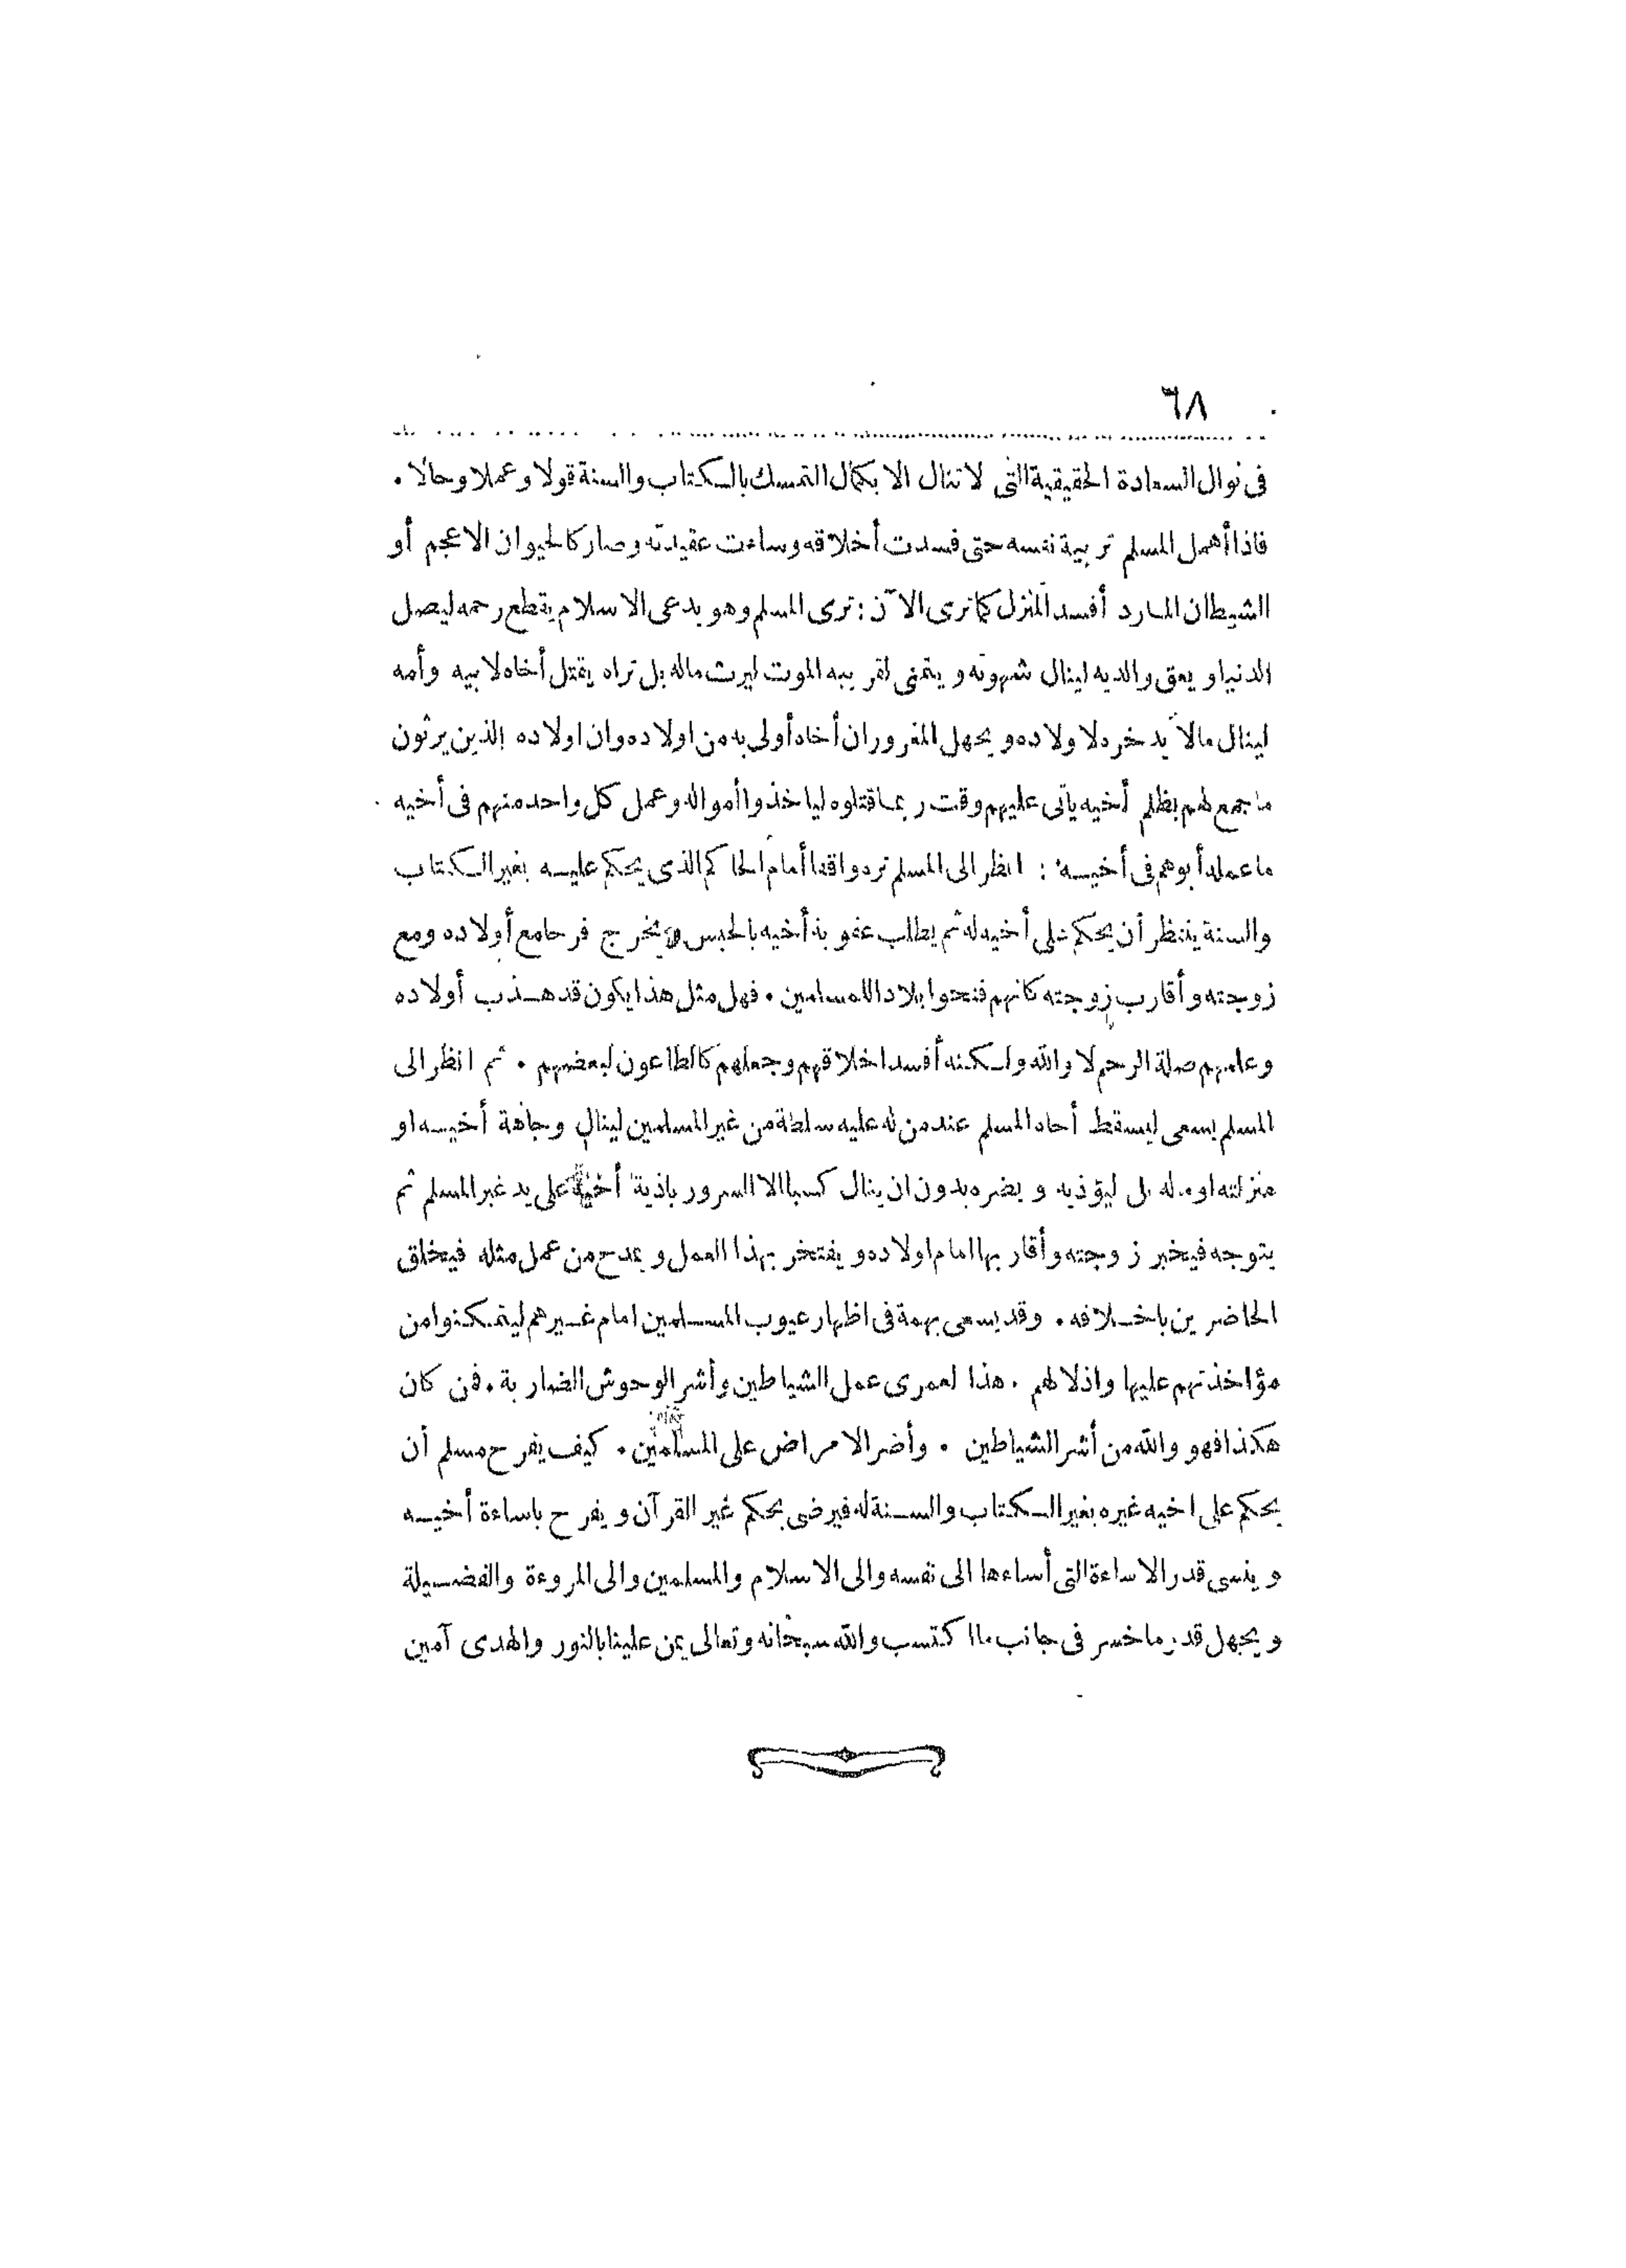 ٦٨
فى نوال السعادة الحقيقية التى لاتنال الا بكمال التمسك بالكتاب والسنة قولا وعملا وحالا .
فاذا أهمل المسلم تربية نفسه حتى فسدت أخلاقه وساءت عقيدته وصار كالحيوان الاعجم أو
الشيطان المارد أفسد المنزل كما ترى الآن : ترى المسلم وهو يدعى الاسلام يقطع رحمه ليصل
الدنيا و يعق والديه لينال شهوته و يتمنى لقريبه الموت ليرث ماله بل تراه يقتل أخاه لابيه وأمه
لينال مالا يدخره لاولاده و يجهل المغرور ان أخاه أولى به من اولاده وان اولاده الذين يرثون
ماجمع لهم بظلم أخيه يأتى عليهم وقت ربما قتلوه لياخذوا أمواله وعمل كل واحد منهم فى أخيه
ماعمله أبوهم فى أخيه : انظر الى المسلم تره واقفا أمام الحاكم الذى يحكم عليه بغير الكتاب
والسنة ينتظر أن يحكم على أخيه له ثم يطلب عقوبة أخيه بالحبس ويخرج فرحا مع أولاده ومع
زوجته وأقارب زوجته كانهم فتحوا بلادا للمسلمين . فهل مثل هذا يكون قد هذب أولاده
وعلمهم صلة الرحم لا والله ولكنه أفسد اخلاقهم وجعلهم كالطاعون لبعضهم . ثم انظر الى
المسلم يسعى ليسقط أخاه المسلم عند من له عليه سلطة من غير المسلمين لينال وجاهة أخيه او
منزلته او ماله بل ليؤذيه و يضره بدون ان ينال كسبا الا السرور باذية أخيه على يد غير المسلم ثم
يتوجه فيخبر زوجته وأقاربها امام اولاده و يفتخر بهذا العمل و يمدح من عمل مثله فيتخلق
الحاضرين باخلافه . وقد يسعى بهمة فى اظهار عيوب المسلمين امام غيرهم ليتمكنوا من
مؤاخذتهم عليها واذلالهم . هذا لعمرى عمل الشياطين وأشر الوحوش الضاربة . فمن كان
هكذا فهو والله من أشر الشياطين . وأضر الامراض على المسلمين . كيف يفرح مسلم أن
يحكم على اخيه غيره بغير الكتاب والسنة له فيرضى بحكم غير القرآن و يفرح باساءة أخيه
و ينسى قدر الاساءة التى أساءها الى نفسه والى الاسلام والمسلمين والى المروءة والفضيلة
و يجهل قدر ماخسر فى جانب ما اكتسب والله سبحانه وتعالى يمن علينا بالنور والهدى آمين